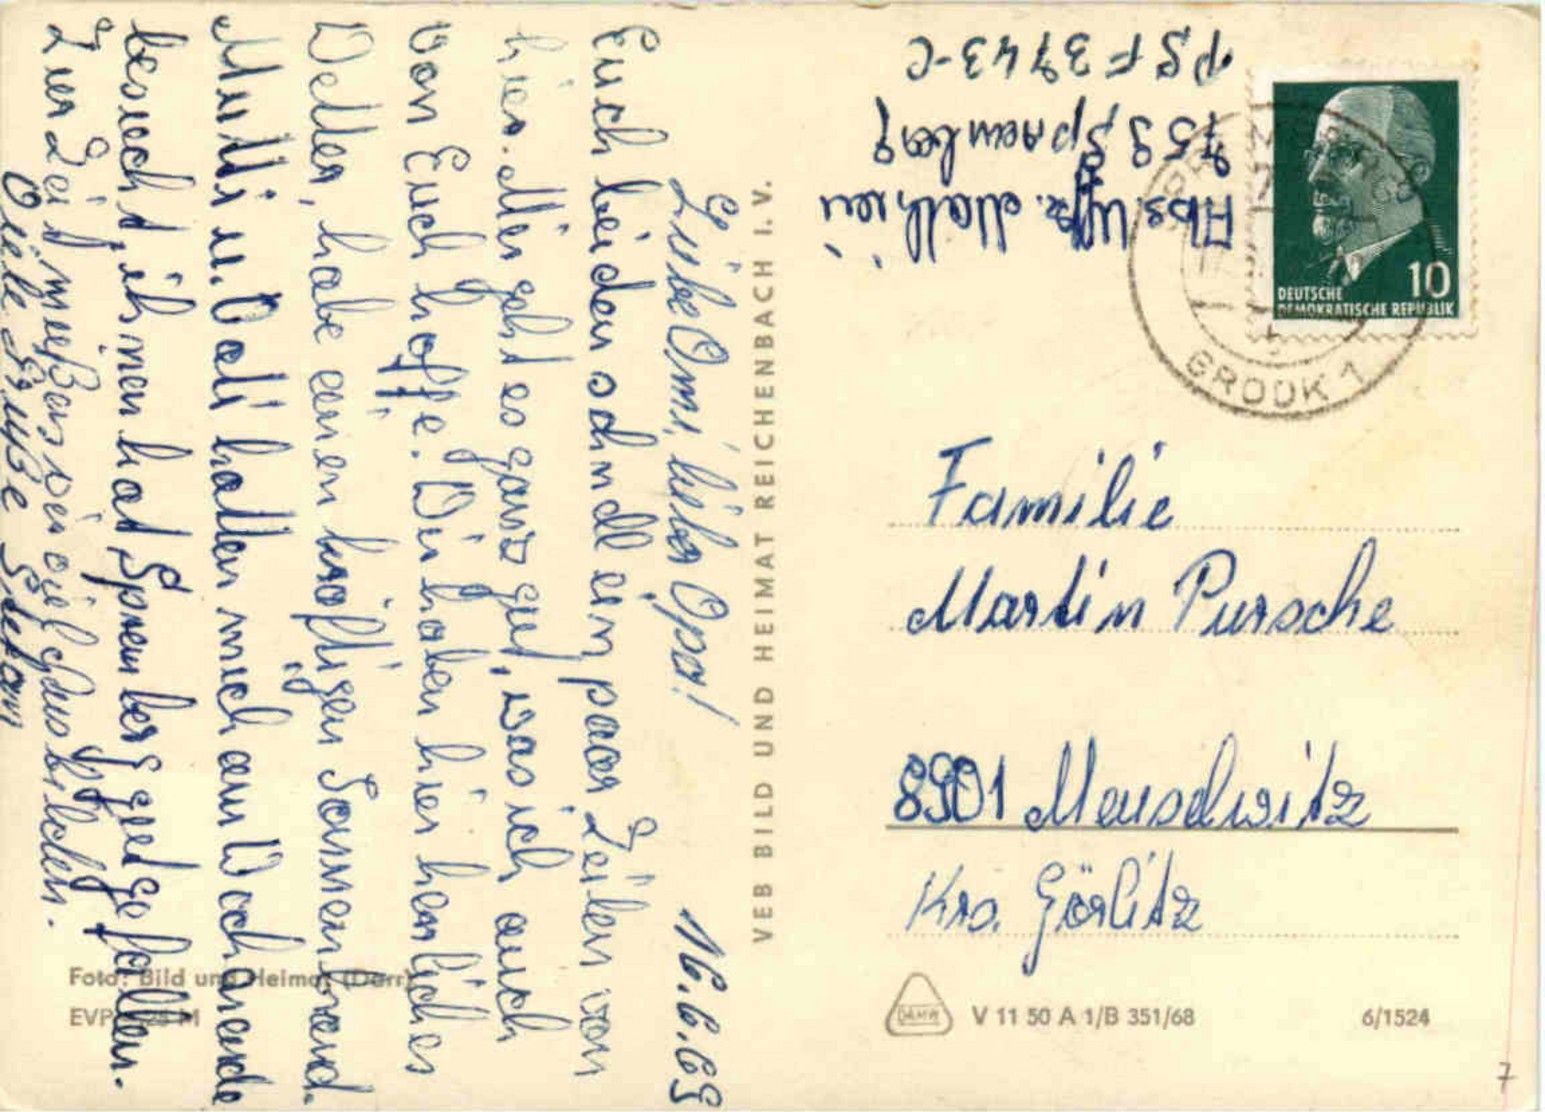 16.6.69
Liebe Omi, lieber Opa!
Euch beiden schnell ein paar Zeilen von
hier. Mir geht es ganz gut, was ich auch
von Euch hoffe. Wir haben hier herrliches
Wetter, habe einen kräftigen Sonnenbrand.
Mutti u. Vati hatten mich am Wochenende
besucht, ihnen hat Spremberg gut gefallen.
Zur Zeit müßen wir viel Uffz. ausbilden.
Viele Grüße
VEB BILD UND HEIMAT REICHENBACH I. V.
Foto: Bild und Heimat (Darr)
EVP M
Abs. Uffz.
759 Spremberg
PSF 3743-C
DEUTSCHE
DEMOKRATISCHE REPUBLIK
10
GROOK 1
Familie
Martin Pursche
8901 Meuselwitz
Krs. Görlitz
V 11 50 A 1/B 351/68
6/1524
7